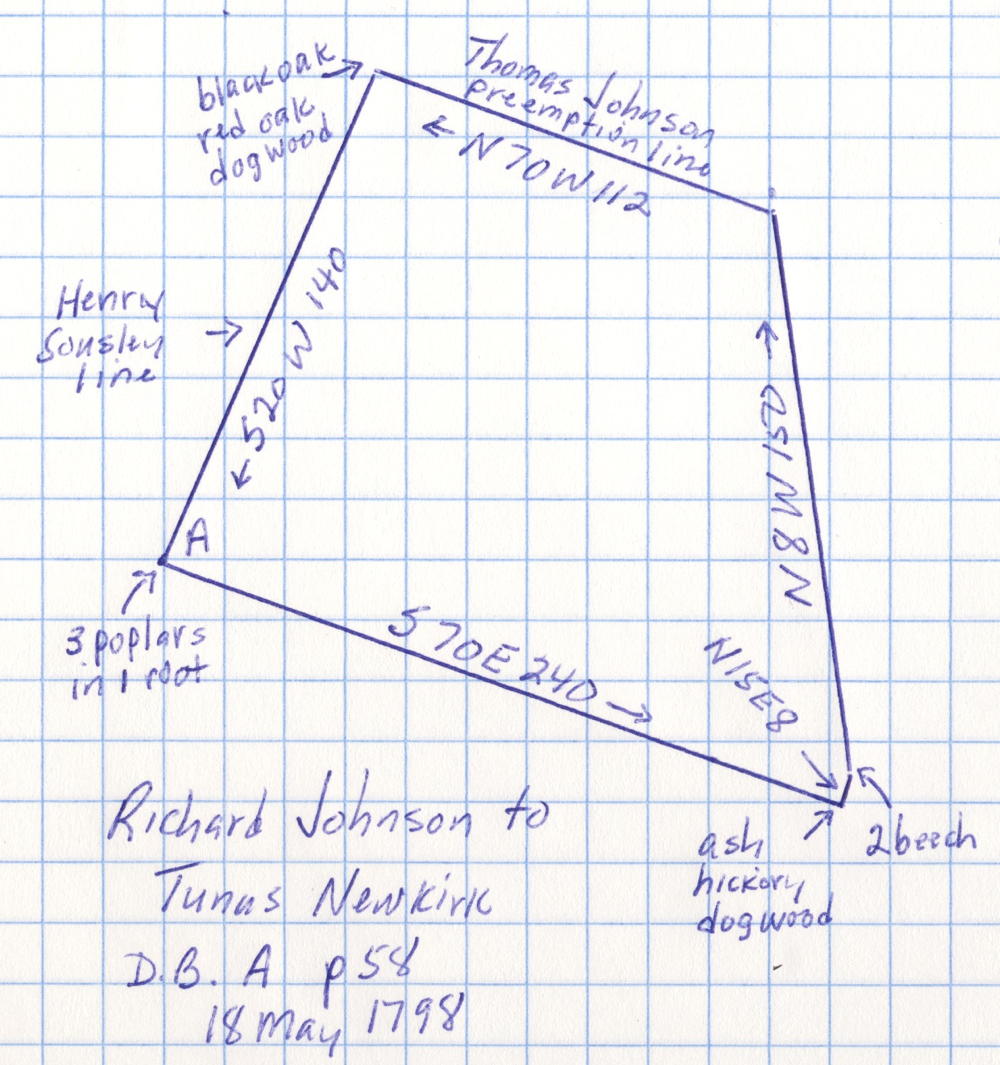 black oak
red oak
dogwood
Thomas Johnson
preemption line
N 70 W 112
S 20 W 140
Henry
Sousley
line
N 8 W 150
A
3 poplars
in 1 root
S 70 E 240
N 15 E 8
2 beech
ash
hickory
dogwood
Richard Johnson to
Tunas Newkirk
D.B. A p 58
18 May 1798